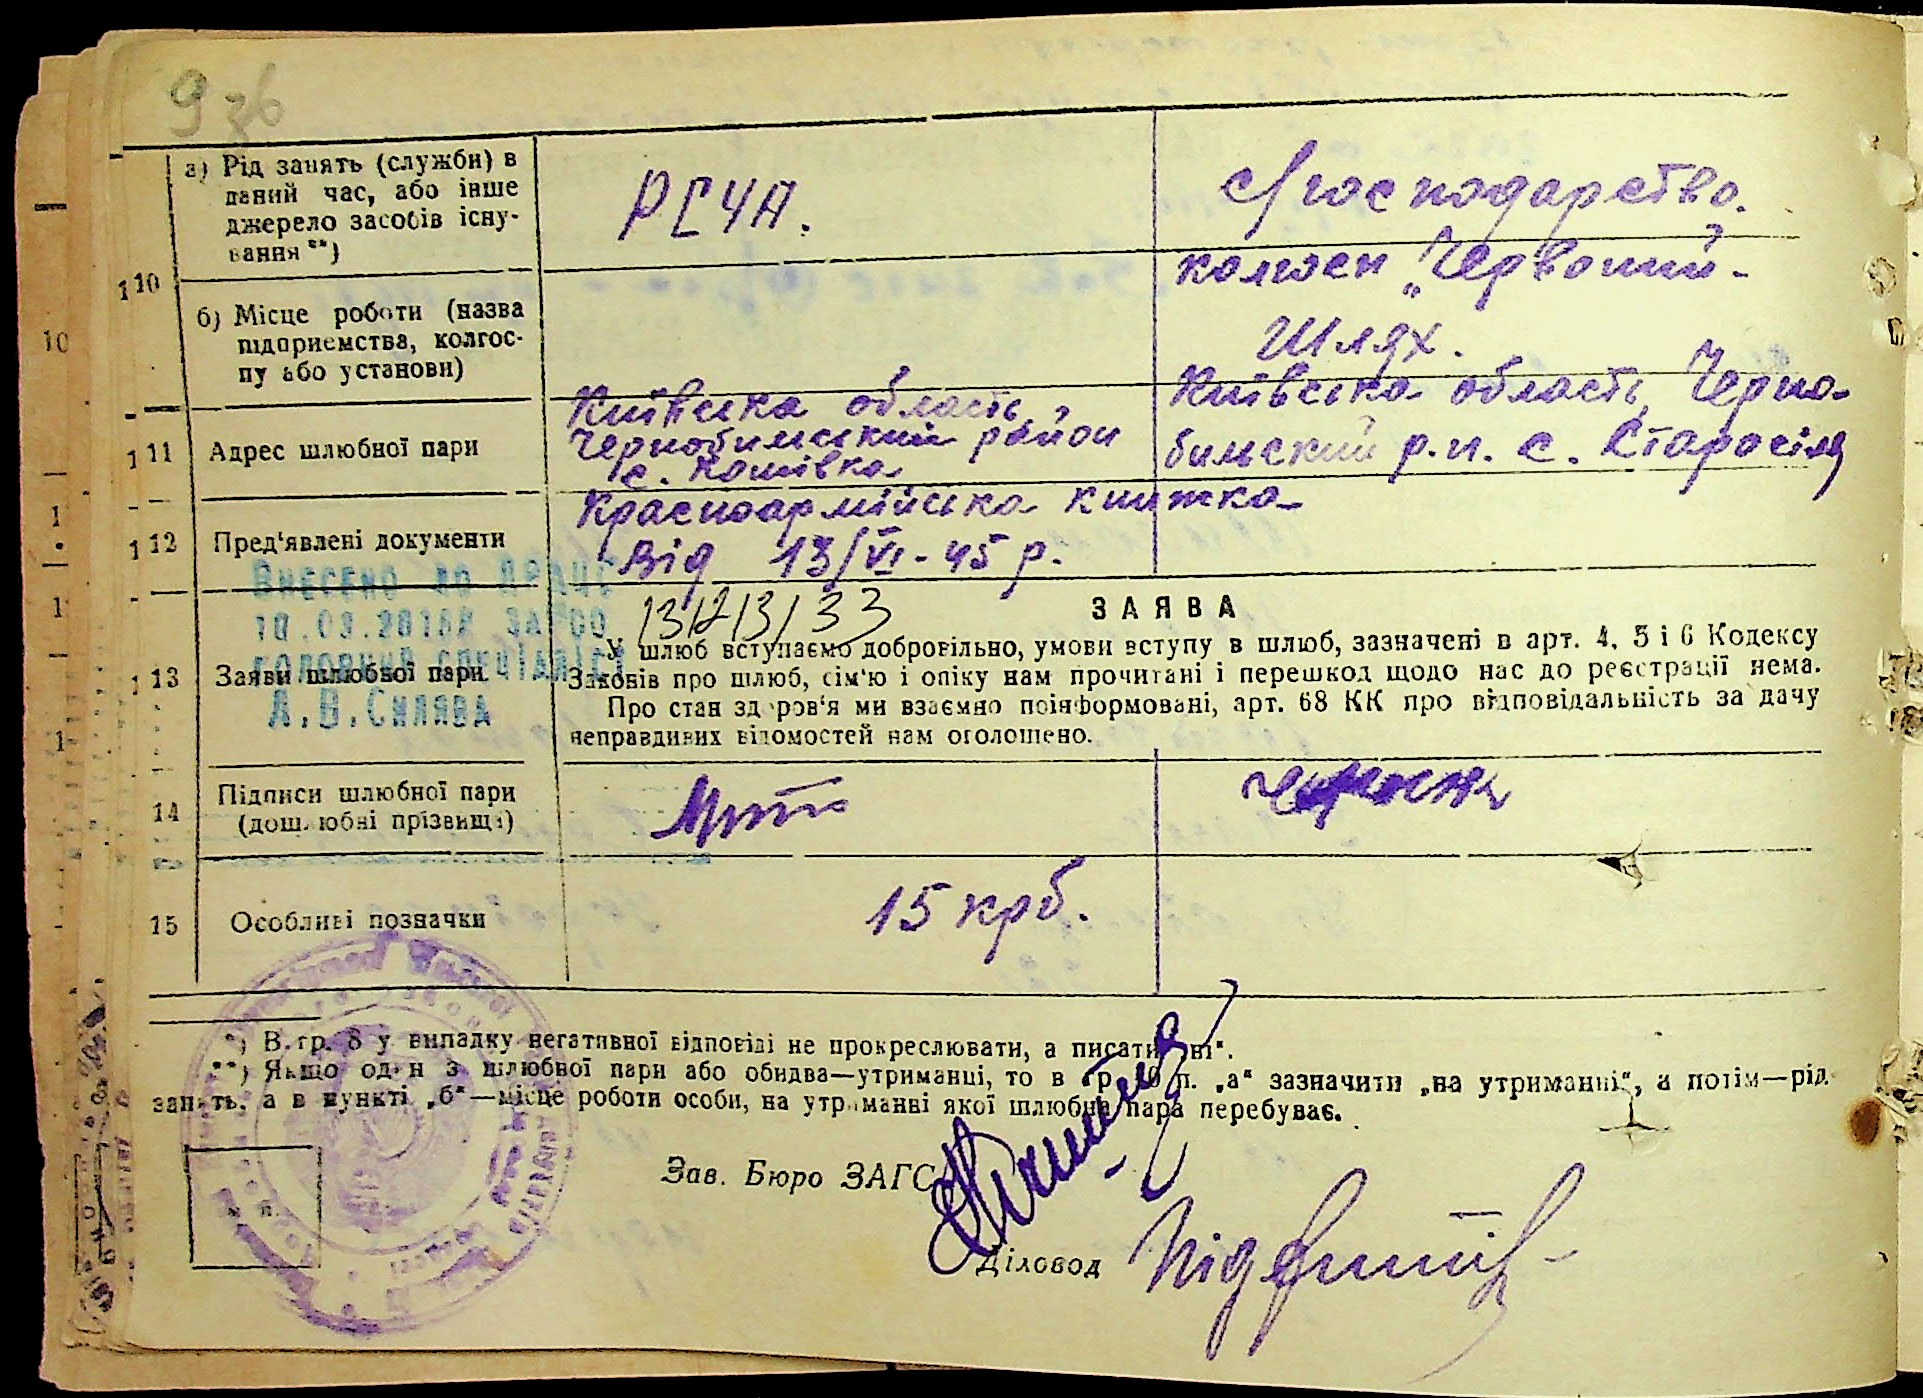 9 зв
а) Рід занять (служби) в
даний час, або інше
джерело засобів існу-
вання**)
РСЧА.
с/господарство.
10
б) Місце роботи (назва
підприємства, колгос-
пу або установи)
колгосп „Червоний-
Шлях.
11
Адрес шлюбної пари
Київська область
Чернобильський район
с. Кошівка
Київська область, Черно-
бильский р.н. с. Старосілля
12
Пред'явлені документи
Красноармійська книжка
від 13/VI-45 р.
Внесено до ДРАЦС
А.В.Силява
13
Заяви шлюбної пари
ЗАЯВА
У шлюб вступаємо добровільно, умови вступу в шлюб, зазначені в арт. 4, 5 і 6 Кодексу
Законів про шлюб, сім'ю і опіку нам прочитані і перешкод щодо нас до реєстрації нема.
Про стан здоров'я ми взаємно поінформовані, арт. 68 КК про відповідальність за дачу
неправдивих відомостей нам оголошено.
14
Підписи шлюбної пари
(дошлюбні прізвища)
15
Особливі позначки
15 крб.
*) В гр. 8 у випадку негативної відповіді не прокреслювати, а писати „ні“.
**) Якщо один з шлюбної пари або обидва—утриманці, то в гр. 10 п. „а“ зазначити „на утриманні“, а потім—рід
занять, а в пункті „б“—місце роботи особи, на утриманні якої шлюбна пара перебуває.
Зав. Бюро ЗАГС
Діловод